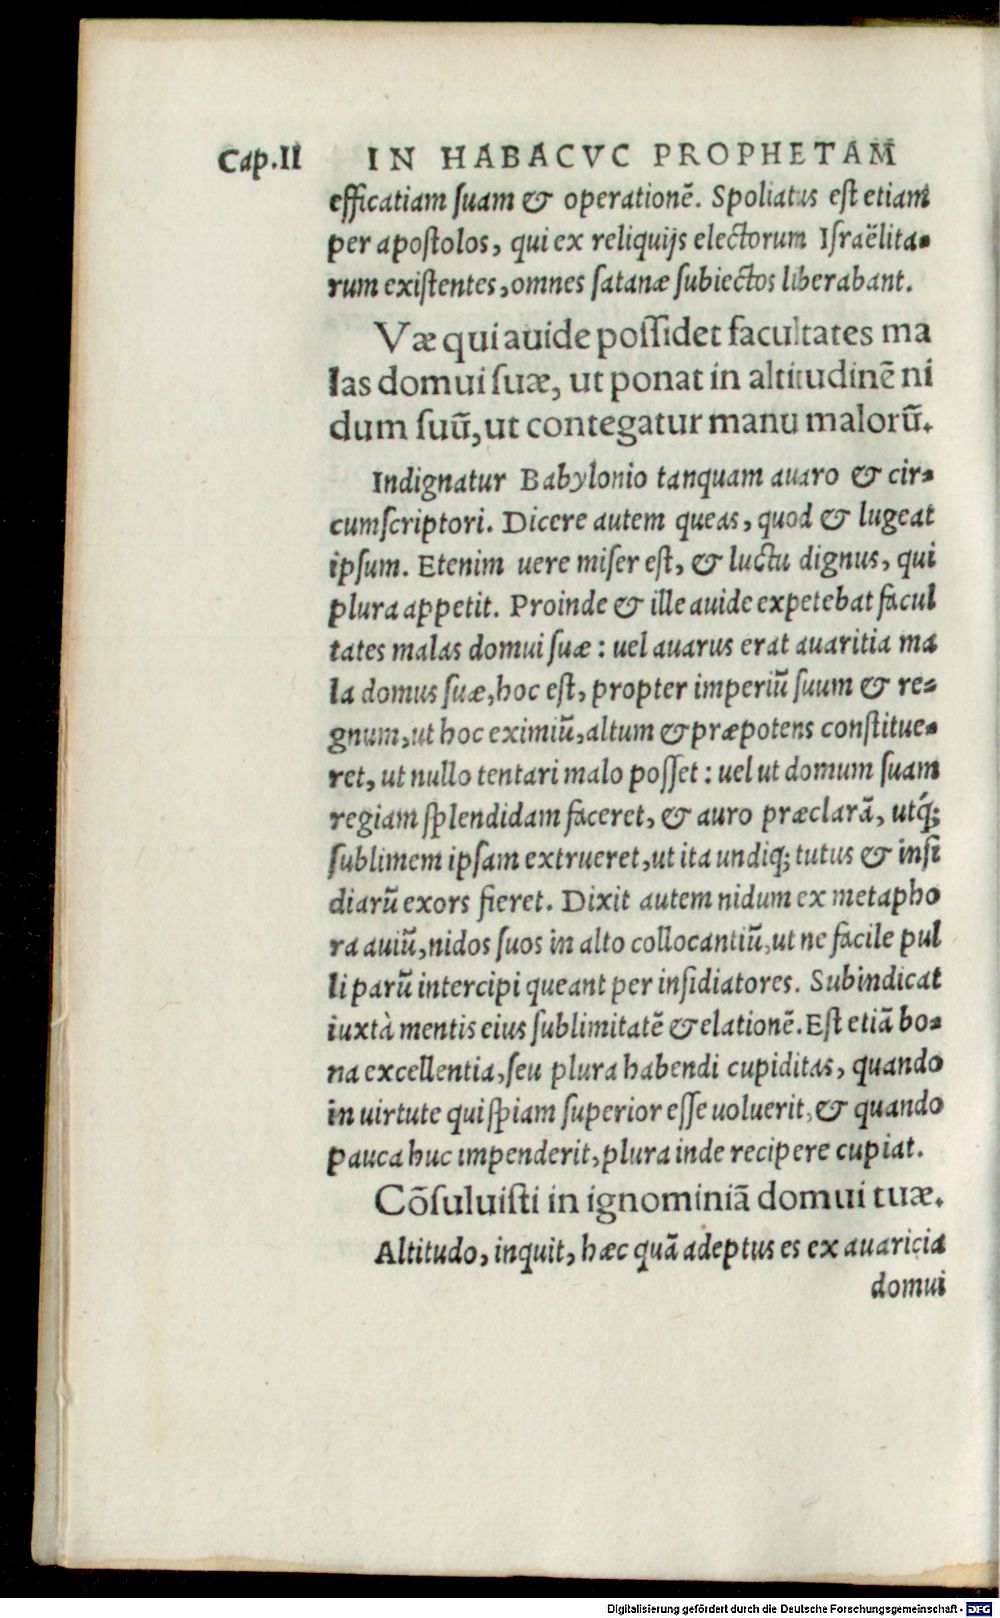 Cap.II IN HABACVC PROPHETAM
efficatiam ſuam & operationẽ. Spoliatus eſt etiam
per apoſtolos, qui ex reliquijs electorum Iſraëlita-
rum exiſtentes, omnes ſatanæ ſubiectos liberabant.
Væ qui auide poſſidet facultates ma
las domui ſuæ, ut ponat in altitudinẽ ni
dum ſuũ, ut contegatur manu malorũ.
Indignatur Babylonio tanquam auaro & cir-
cumſcriptori. Dicere autem queas, quod & lugeat
ipſum. Etenim uere miſer eſt, & luctu dignus, qui
plura appetit. Proinde & ille auide expetebat facul
tates malas domui ſuæ : uel auarus erat auaritia ma
la domus ſuæ, hoc eſt, propter imperiũ ſuum & re-
gnum, ut hoc eximiũ, altum & præpotens conſtitue-
ret, ut nullo tentari malo poſſet : uel ut domum ſuam
regiam ſplendidam faceret, & auro præclarã, utq́;
ſublimem ipſam extrueret, ut ita undiq; tutus & inſi
diarũ exors fieret. Dixit autem nidum ex metapho
ra auiũ, nidos ſuos in alto collocantiũ, ut ne facile pul
li parũ intercipi queant per inſidiatores. Subindicat
iuxtà mentis eius ſublimitatẽ & elationẽ. Eſt etiã bo-
na excellentia, ſeu plura habendi cupiditas, quando
in uirtute quiſpiam ſuperior eſſe uoluerit, & quando
pauca huc impenderit, plura inde recipere cupiat.
Cõſuluiſti in ignominiã domui tuæ.
Altitudo, inquit, hæc quã adeptus es ex auaricia
domui
Digitalisierung gefördert durch die Deutsche Forschungsgemeinschaft - DFG